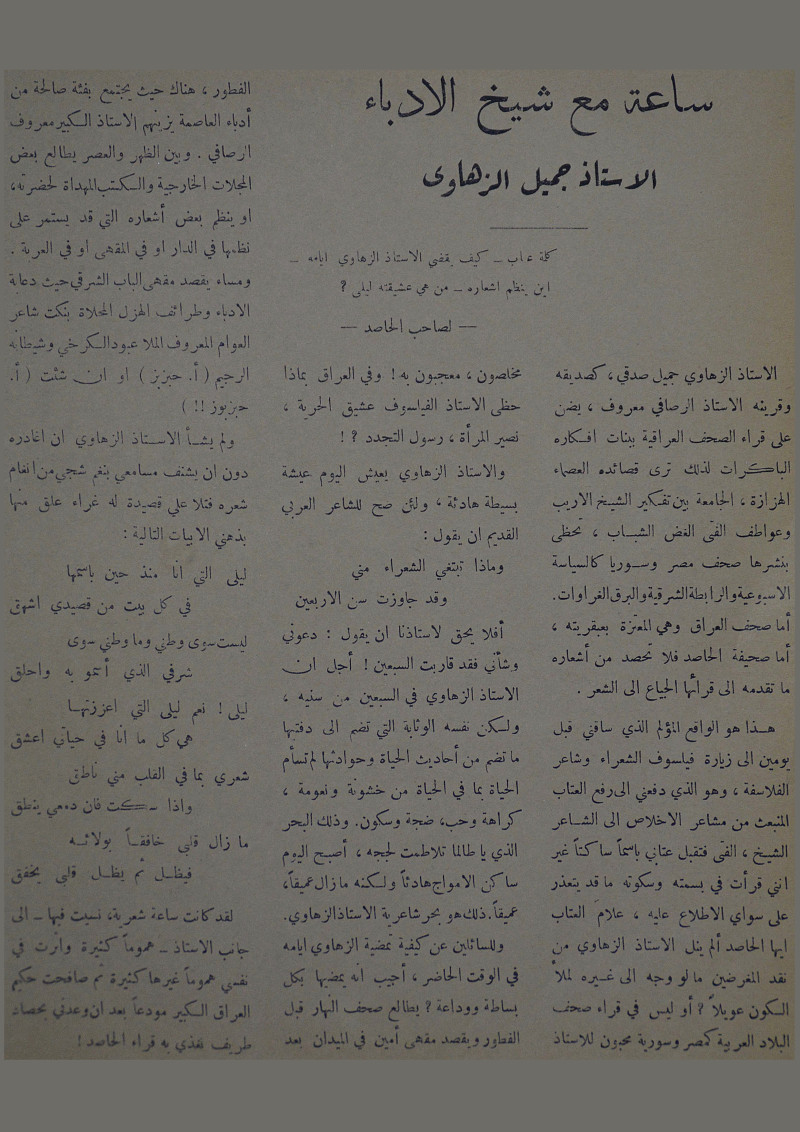 ساعة مع شيخ الادباء
الاستاذ جميل الزهاوى
كلمة عتاب – كيف يقضي الاستاذ الزهاوي ايامه –
اين ينظم اشعاره – من هي عشيقته ليلى ?
— لصاحب الحاصد —
الاستاذ الزهاوي جميل صدقي ، كصديقه
وقرينه الاستاذ الرصافي معروف ، يضن
على قراء الصحف العراقية ببنات افكاره
الباكرات لذلك ترى قصائده العصماء
الهزازة ، الجامعة بين تفكير الشيخ الاريب
وعواطف الفتى الغض الشباب ، تحظى
بنشرها صحف مصر وسوريا كالسياسة
الاسبوعية والرابطة الشرقية والبرق الغراوات.
أما صحف العراق وهي المعتزة بعبقريته ،
أما صحيفة الحاصد فلا تحصد من أشعاره
ما تقدمه الى قرائها الجياع الى الشعر .
هـذا هو الواقع المؤلم الذي ساقني قبل
يومين الى زيارة فيلسوف الشعراء وشاعر
الفلاسفة ، وهو الذي دفعني الى رفع العتاب
المنبعث من مشاعر الاخلاص الى الشـاعر
الشيخ ، الفتى فتقبل عتابي باسماً ساكتاً غير
انني قرأت في بسمته وسكوته ما قد يتعذر
على سواي الاطلاع عليه ، علامَ العتاب
ايها الحاصد ألم ينل الاستاذ الزهاوي من
نقد المغرضين ما لو وجه الى غـيره لملأ
الكون عويلاً ? أو ليس في قراء صحف
البلاد العربية كمصر وسورية محبون للاستاذ
مخلصون ، معجبون به ! وفي العراق بماذا
حظى الاستاذ الفيلسوف عشيق الحرية ،
نصير المرأة ، رسول التجدد ? !
والاستاذ الزهاوي يعيش اليوم عيشة
بسيطة هادئة ، ولئن صح للشاعر العربي
القديم ان يقول :
وماذا تبتغي الشعراء مني
وقد جاوزت سن الاربعين
أفلا يحق لاستاذنا ان يقول : دعوني
وشأني فقد قاربت السبعين ! أجل ان
الاستاذ الزهاوي في السبعين من سنيه ،
ولكن نفسه الوثابة التي تضم الى دفتيها
ما تضم من أحاديث الحياة وحوادثها لم تسأم
الحياة بما في الحياة من خشونة ونعومة ،
كراهة وحب، ضجة وسكون. وذلك البحر
الذي يا طالما تلاطمت لججه ، أصبح اليوم
ساكن الامواج هادئاً ولكنه ما زال عميقاً،
عميقاً. ذلك هو بحر شاعرية الاستاذ الزهاوي.
وللسائلين عن كيفية تمضية الزهاوي ايامه
في الوقت الحاضر ، أجيب انه يمضيها بكل
بساطة ووداعة ? يطالع صحف النهار قبل
الفطور ويقصد مقهى أمين في الميدان بعد
الفطور ، هناك حيث يجتمع بفئة صالحة من
أدباء العاصمة يزينهم الاستاذ الكبير معروف
الرصافي . وبين الظهر والعصر يطالع بعض
المجلات الخارجية والكتب المهداة لحضرته،
او ينظم بعض أشعاره التي قد يستمر على
نظمها في الدار او في المقهى او في العربة .
ومساء يقصد مقهى الباب الشرقي حيث دعابة
الادباء وطرائف الهزل المحلاة بنكت شاعر
العوام المعروف الملا عبود الكرخي وشيطانه
الرجيم ( أ. حبزبز ) او ان شئت ( أ.
حبزبوز !! )
ولم يشـأ الاسـتاذ الزهاوي ان اغادره
دون ان يشنف مسامعي بنغم شجي من انغام
شعره فتلا علي قصيدة له غراء علق منها
بذهني الابيات التالية :
ليلى التي انا منذ حين باسمها
في كل بيت من قصيدي اشهق
ليست سوى وطني وما وطني سوى
شرفي الذي أسمو به واحلق
ليلى ! نعم ليلى التي اعززتهـا
هي كل ما انا في حياتي اعشق
شعري بما في القلب مني ناطق
واذا سـكت فان دمعي ينطق
ما زال قلبي خافقـاً بولائـه
فيظـل ثم يظـل قلبي يخفق
لقد كانت ساعة شعرية، نسيت فيها – الى
جانب الاستاذ – هموماً كثيرة وأرت في
نفسي هموماً غيرها كثيرة ثم صافحت حكيم
العراق الكبير مودعاً بعد ان وعدني بحصاد
طريف نغذي به قراء الحاصد !